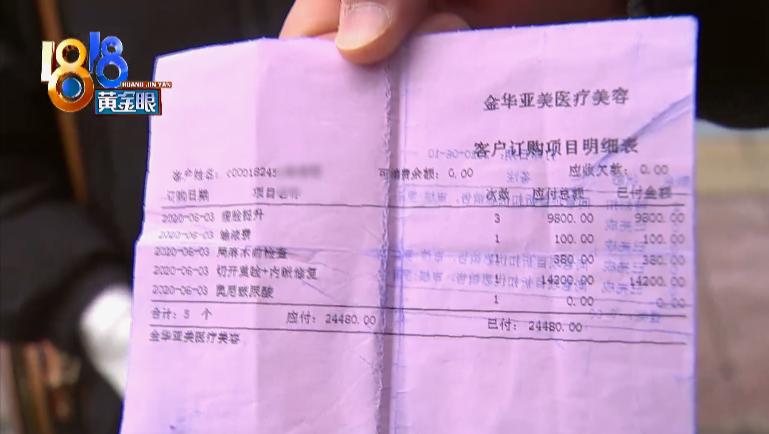 1818
HUANG JIN YAN
黄金眼
金华亚美医疗美容
客户订购项目明细表
客户姓名: c00018245 可消费余额: 0.00 应收欠款: 0.00
订购日期 项目 次数 应付总额 已付金额
2020-06-03 提升 3 9800.00 9800.00
2020-06-03 输液费 1 100.00 100.00
2020-06-03 局麻术前检查 1 380.00 380.00
2020-06-03 切开重睑+内眦修复 1 14200.00 14200.00
2020-06-03 奥昆玻尿酸 1 0.00 0.00
合计: 5 个 应付: 24480.00 已付: 24480.00
金华亚美医疗美容